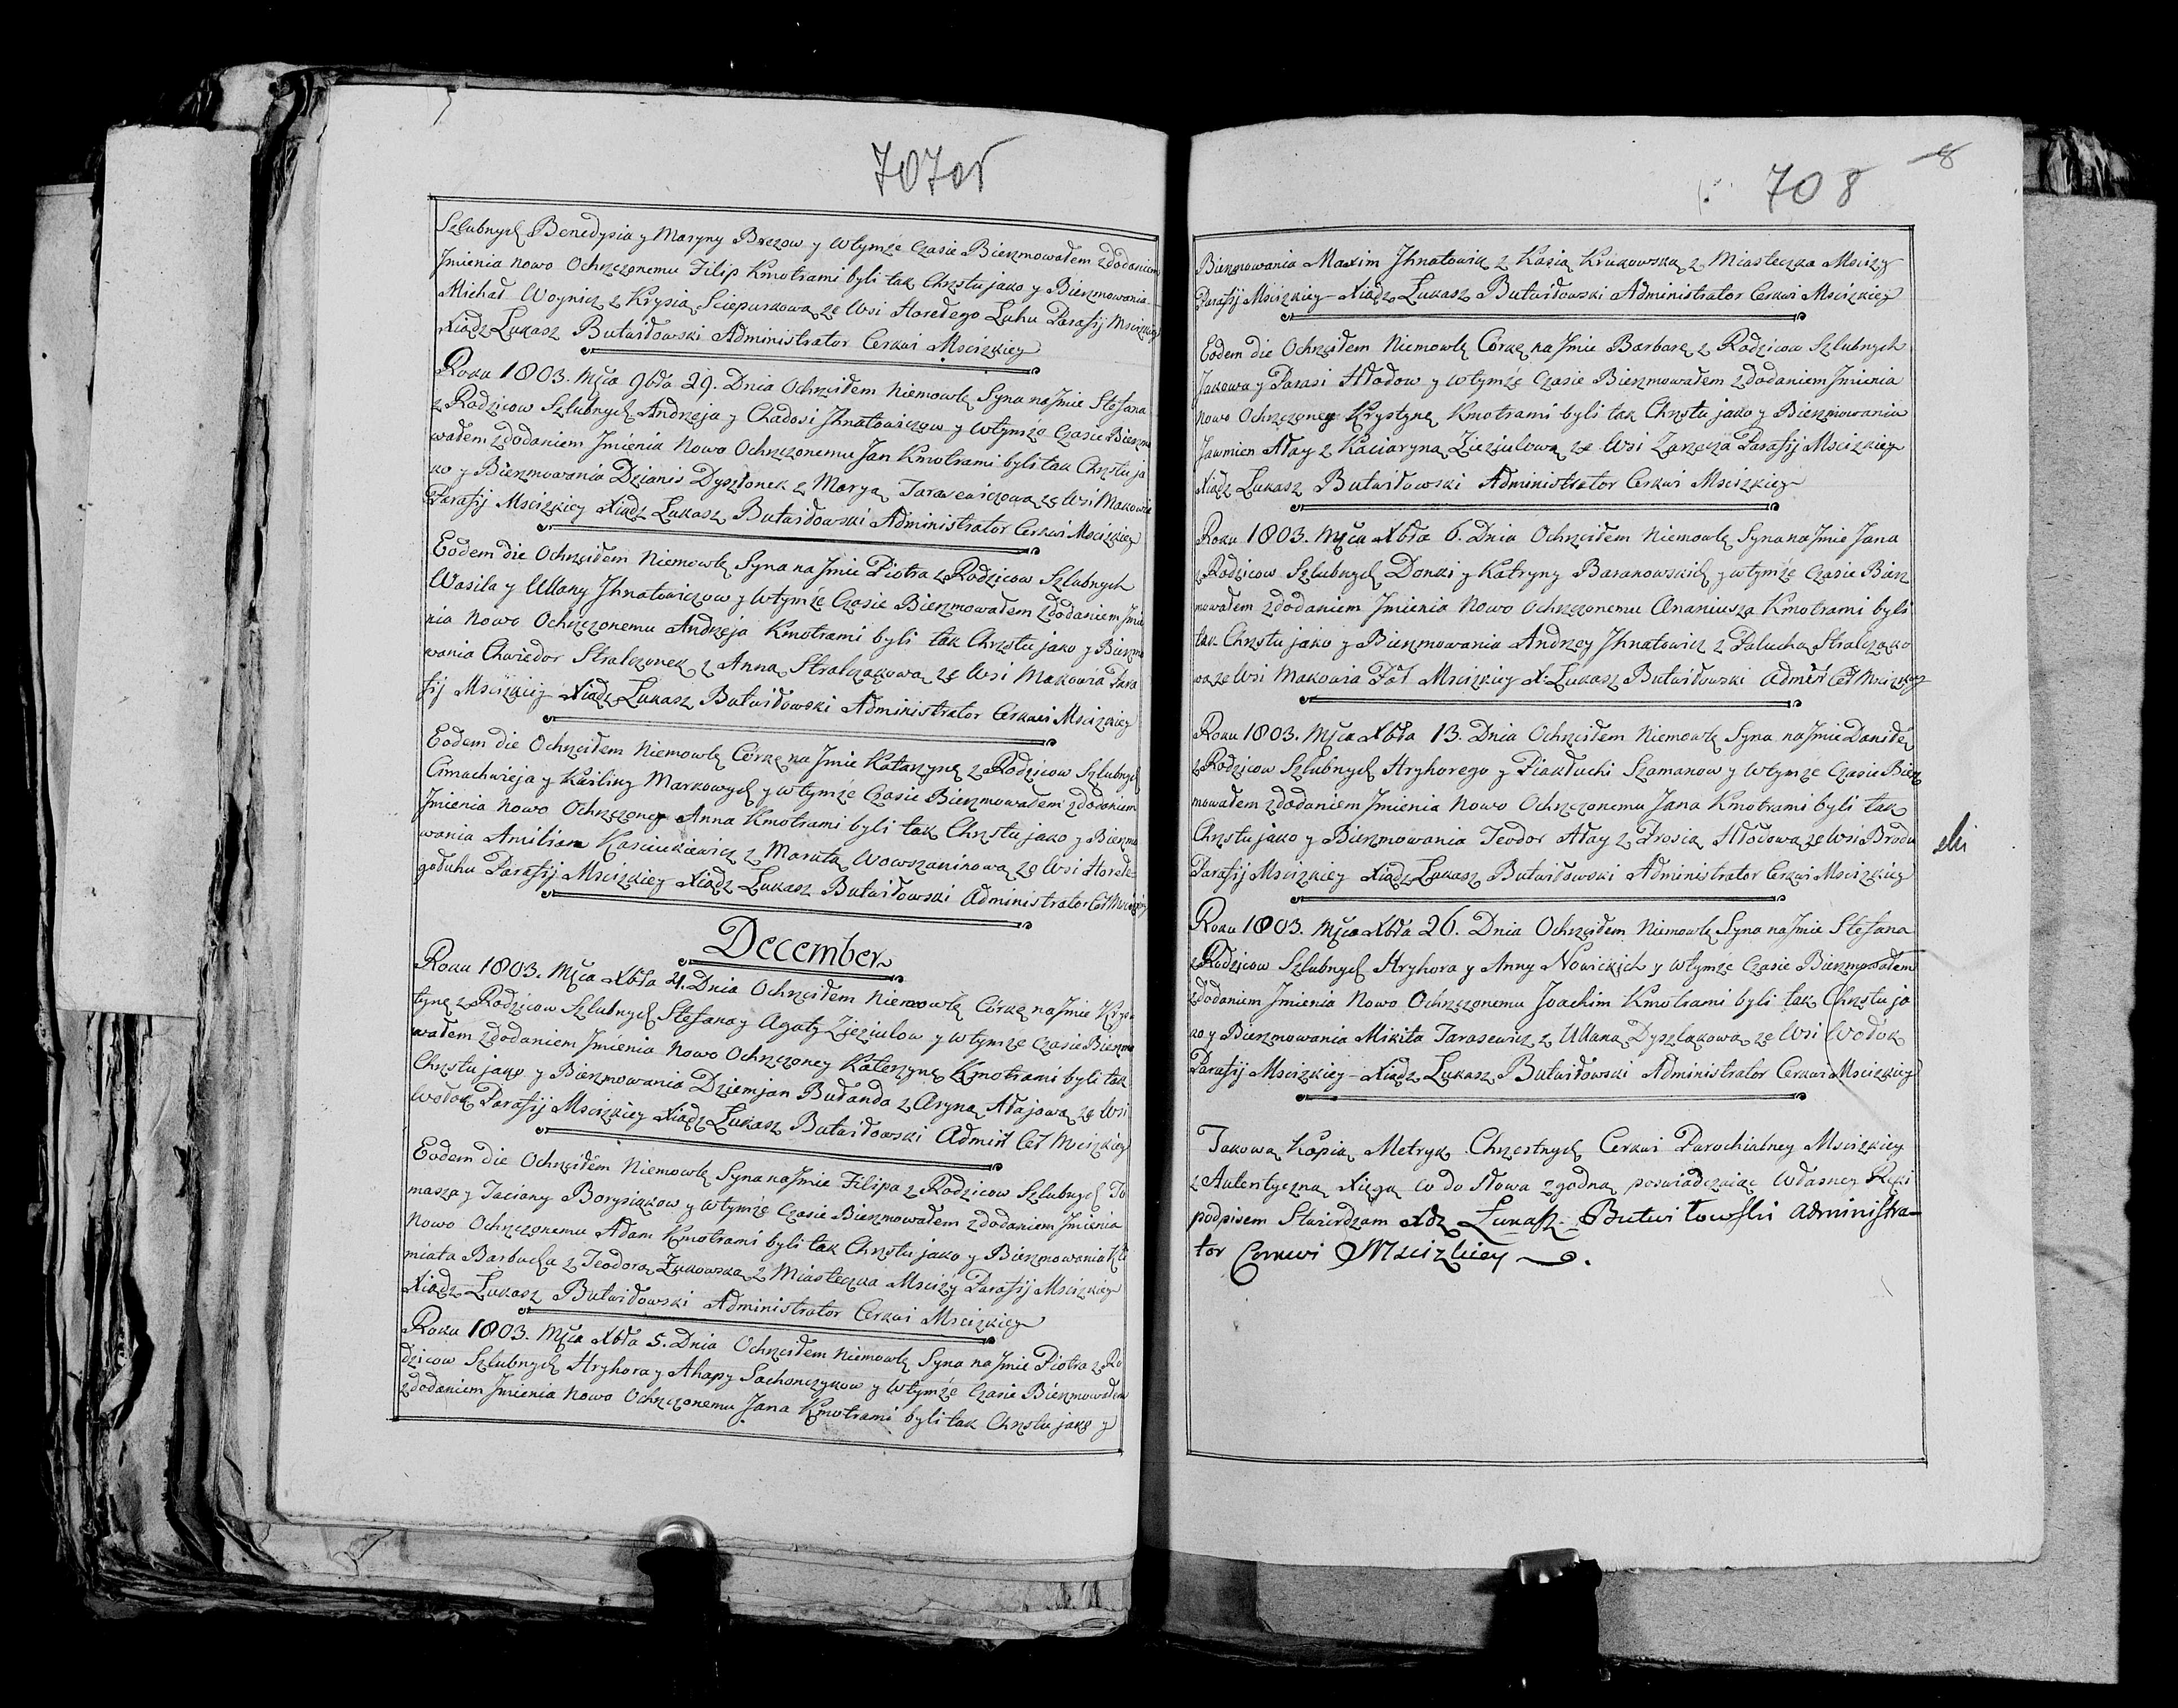 707об
Szlubnych Benedysia y Maryny Bazow y wtymże Czasie Bierzmowałem zdodaniem
Jmienia nowo Ochrzczonemu Filip Kmotrami byli tak Chrztu jako y Bierzmowania
Michał Woynicz z Krysią Sciepurkową ze Wsi Horedego Luhu Parafij Mscizkiey
Xiądz Łukasz Butwiłowski Administrator Cerkwi Mscizkiey
Roku 1803. Mca 9bra 29. Dnia Ochrzciłem Niemowlę Syna na Jmie Stefana
z Rodzicow Szlubnych Andrzeja y Chadosi Jhnatowiczow y wtymże Czasie Bierzmo
wałem zdodaniem Jmienia Nowo Ochrzczonemu Jan Kmotrami byli tak Chrztu ja
ko y Bierzmowania Dzianis Dyszlonek z Maryą Tarasewiczową ze Wsi Makowia
Parafij Mscizkiey Xiądz Łukasz Butwiłowski Administrator Cerkwi Mscizkiey
Eodem die Ochrzciłem Niemowlę Syna na Jmie Piotra z Rodzicow Szlubnych
Wasila y Ullany Jhnatowiczow y wtymże Czasie Bierzmowałem zdodaniem Jmie
nia Nowo Ochrzczonemu Andrzeja Kmotrami byli tak Chrztu jako y Bierzmo
wania Chwiedor Stralczonek z Anną Stralczakową ze Wsi Makowia Para
fij Mscizkiey Xiądz Łukasz Butwiłowski Administrator Cerkwi Mscizkiey
Eodem die Ochrzciłem Niemowlę Córkę na Jmie Katarzynę z Rodzicow Szlubnych
Cimachwieja y Kasiliny Markowych y wtymże Czasie Bierzmowałem zdodaniem
Jmienia Nowo Ochrzczoney Anna Kmotrami byli tak Chrztu jako y Bierzmo
wania Amilian Kasciukiewicz z Marutą Wowszaninową ze Wsi Horede
gołuhu Parafij Mscizkiey Xiądz Łukasz Butwiłowski Administrator Cer Mscizkiey
December
Roku 1803. Mca Xbra 4. Dnia Ochrzciłem Niemowlę Córkę na Jmie Krys
tynę z Rodzicow Szlubnych Stefana y Agaty Zieziulow y wtymże Czasie Bierzmo
wałem zdodaniem Jmienia Nowo Ochrzczoney Katerzynę Kmotrami byli tak
Chrztu jako y Bierzmowania Dziemjan Bułanda z Aryną Ałajową ze Wsi
Wołok Parafij Mscizkiey Xiądz Łukasz Butwiłowski Admintr Cer Mscizkiey
Eodem die Ochrzciłem Niemowlę Syna na Jmie Filipa z Rodzicow Szlubnych To
masza y Taciany Borysiakow y wtymże Czasie Bierzmowałem zdodaniem Jmienia
Nowo Ochrzczonemu Adam Kmotrami byli tak Chrztu jako y Bierzmowania Kli
miata Barbucha z Teodorą Żukowską z Miasteczka Mscizy Parafij Mscizkiey
Xiądz Łukasz Butwiłowski Administrator Cerkwi Mscizkiey
Roku 1803. Mca Xbra 5. Dnia Ochrzciłem Niemowlę Syna na Jmie Piotra z Ro
dzicow Szlubnych Hryhora y Ahapy Sachonczykow y wtymże Czasie Bierzmowałem
zdodaniem Jmienia Nowo Ochrzczonemu Jana Kmotrami byli tak Chrztu jako y
708
8
Bierzmowania Maxim Jhnatowicz z Kasią Krukowską z Miasteczka Mscizy
Parafij Mscizkiey Xiądz Łukasz Butwiłowski Administrator Cerkwi Mscizkiey
Eodem die Ochrzciłem Niemowlę Córkę na Jmie Barbarę z Rodzicow Szlubnych
Jakowa y Parasi Hłodow y wtymże Czasie Bierzmowałem zdodaniem Jmienia
Nowo Ochrzczoney Krystynę Kmotrami byli tak Chrztu jako y Bierzmowania
Jawmien Ałay z Kaciaryną Zieziulową ze Wsi Zarzecza Parafij Mscizkiey
Xiądz Łukasz Butwiłowski Administrator Cerkwi Mscizkiey
Roku 1803. Mca Xbra 6. Dnia Ochrzciłem Niemowlę Syna na Jmie Jana
z Rodzicow Szlubnych Donki y Katryny Baranowskich y wtymże Czasie Bierz
mowałem zdodaniem Jmienia Nowo Ochrzczonemu Ananiusza Kmotrami byli
tak Chrztu jako y Bierzmowania Andrzey Jhnatowicz z Paluchą Stralczako
wą ze Wsi Makowia Par Mscizkiey X. Łukasz Butwiłowski Admintr Cer Mscizkiey
Roku 1803. Mca Xbra 13. Dnia Ochrzciłem Niemowlę Syna na Jmie Daniłę
z Rodzicow Szlubnych Hryhorego y Piakłuchi Szamanow y wtymże Czasie Bierz
mowałem zdodaniem Jmienia Nowo Ochrzczonemu Jana Kmotrami byli tak
Chrztu jako y Bierzmowania Teodor Ałay z Prosią Hłodową ze Wsi Brodu
Parafij Mscizkiey Xiądz Łukasz Butwiłowski Administrator Cerkwi Mscizkiey
Roku 1803. Mca Xbra 26. Dnia Ochrzciłem Niemowlę Syna na Jmie Stefana
z Rodzicow Szlubnych Hryhora y Anny Nowickich y wtymże Czasie Bierzmowałem
zdodaniem Jmienia Nowo Ochrzczonemu Joachim Kmotrami byli tak Chrztu ja
ko y Bierzmowania Mikita Tarasewicz z Ullaną Dyszlakową ze Wsi Wołok
Parafij Mscizkiey Xiądz Łukasz Butwiłowski Administrator Cerkwi Mscizkiey
Takową Kopią Metryk Chrzestnych Cerkwi Parochialney Mscizkiey
z Autentyczną Xięgą co do Słowa zgodną poswiadczaiąc Własney Ręki
podpisem Stwierdzam Xdz Łukasz Butwiłowski Administra-
tor Cerkwi Mscizkiey